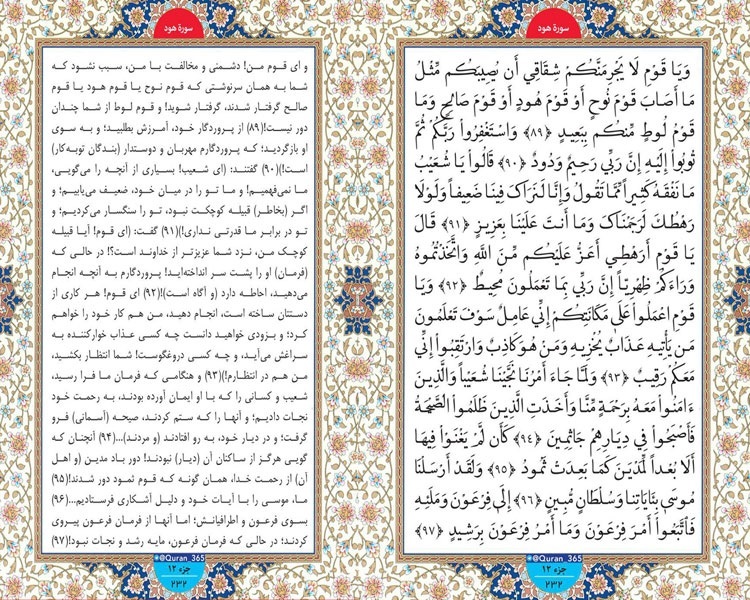 سورهٔ هود
وَيَا قَوْمِ لَا يَجْرِمَنَّكُمْ شِقَاقِي أَن يُصِيبَكُم مِّثْلُ
مَا أَصَابَ قَوْمَ نُوحٍ أَوْ قَوْمَ هُودٍ أَوْ قَوْمَ صَالِحٍ وَمَا
قَوْمُ لُوطٍ مِّنكُم بِبَعِيدٍ ﴿٨٩﴾ وَاسْتَغْفِرُوا رَبَّكُمْ ثُمَّ
تُوبُوا إِلَيْهِ إِنَّ رَبِّي رَحِيمٌ وَدُودٌ ﴿٩٠﴾ قَالُوا يَا شُعَيْبُ
مَا نَفْقَهُ كَثِيراً مِّمَّا تَقُولُ وَإِنَّا لَنَرَاكَ فِينَا ضَعِيفاً وَلَوْلَا
رَهْطُكَ لَرَجَمْنَاكَ وَمَا أَنتَ عَلَيْنَا بِعَزِيزٍ ﴿٩١﴾ قَالَ
يَا قَوْمِ أَرَهْطِي أَعَزُّ عَلَيْكُم مِّنَ اللَّهِ وَاتَّخَذْتُمُوهُ
وَرَاءَكُمْ ظِهْرِيّاً إِنَّ رَبِّي بِمَا تَعْمَلُونَ مُحِيطٌ ﴿٩٢﴾ وَيَا
قَوْمِ اعْمَلُوا عَلَى مَكَانَتِكُمْ إِنِّي عَامِلٌ سَوْفَ تَعْلَمُونَ
مَن يَأْتِيهِ عَذَابٌ يُخْزِيهِ وَمَنْ هُوَ كَاذِبٌ وَارْتَقِبُوا إِنِّي
مَعَكُمْ رَقِيبٌ ﴿٩٣﴾ وَلَمَّا جَاءَ أَمْرُنَا نَجَّيْنَا شُعَيْباً وَالَّذِينَ
ءَامَنُوا مَعَهُ بِرَحْمَةٍ مِّنَّا وَأَخَذَتِ الَّذِينَ ظَلَمُوا الصَّيْحَةُ
فَأَصْبَحُوا فِي دِيَارِهِمْ جَاثِمِينَ ﴿٩٤﴾ كَأَن لَّمْ يَغْنَوْا فِيهَا
أَلَا بُعْداً لِّمَدْيَنَ كَمَا بَعِدَتْ ثَمُودُ ﴿٩٥﴾ وَلَقَدْ أَرْسَلْنَا
مُوسَى بِئَايَاتِنَا وَسُلْطَانٍ مُّبِينٍ ﴿٩٦﴾ إِلَى فِرْعَوْنَ وَمَلَئِهِ
فَاتَّبَعُوا أَمْرَ فِرْعَوْنَ وَمَا أَمْرُ فِرْعَوْنَ بِرَشِيدٍ ﴿٩٧﴾
@Quran_365
جزء ۱۲
۲۳۲
سورهٔ هود
و ای قوم من! دشمنی و مخالفت با من، سبب نشود که
شما به همان سرنوشتی که قوم نوح یا قوم هود یا قوم
صالح گرفتار شدند، گرفتار شوید! و قوم لوط از شما چندان
دور نیست!(۸۹) از پروردگار خود، آمرزش بطلبید؛ و به سوی
او بازگردید؛ که پروردگارم مهربان و دوستدار (بندگان توبه‌کار)
است!)(۹۰) گفتند: (ای شعیب! بسیاری از آنچه را می‌گویی،
ما نمی‌فهمیم! و ما تو را در میان خود، ضعیف می‌یابیم؛ و
اگر (بخاطر) قبیله کوچکت نبود، تو را سنگسار می‌کردیم؛ و
تو در برابر ما قدرتی نداری!)(۹۱) گفت: (ای قوم! آیا قبیله
کوچک من، نزد شما عزیزتر از خداوند است؟! در حالی که
(فرمان) او را پشت سر انداخته‌اید! پروردگارم به آنچه انجام
می‌دهید، احاطه دارد (و آگاه است)!(۹۲) ای قوم! هر کاری از
دستتان ساخته است، انجام دهید، من هم کار خود را خواهم
کرد؛ و بزودی خواهید دانست چه کسی عذاب خوارکننده به
سراغش می‌آید، و چه کسی دروغگوست! شما انتظار بکشید،
من هم در انتظارم!)(۹۳) و هنگامی که فرمان ما فرا رسید،
شعیب و کسانی را که با او ایمان آورده بودند، به رحمت خود
نجات دادیم؛ و آنها را که ستم کردند، صیحه (آسمانی) فرو
گرفت؛ و در دیار خود، به رو افتادند (و مردند)...(۹۴) آنچنان که
گویی هرگز از ساکنان آن (دیار) نبودند! دور باد مدین (و اهل
آن) از رحمت خدا، همان گونه که قوم ثمود دور شدند!(۹۵)
ما، موسی را با آیات خود و دلیل آشکاری فرستادیم...(۹۶)
بسوی فرعون و اطرافیانش؛ اما آنها از فرمان فرعون پیروی
کردند؛ در حالی که فرمان فرعون، مایه رشد و نجات نبود!(۹۷)
@Quran_365
جزء ۱۲
۲۳۲